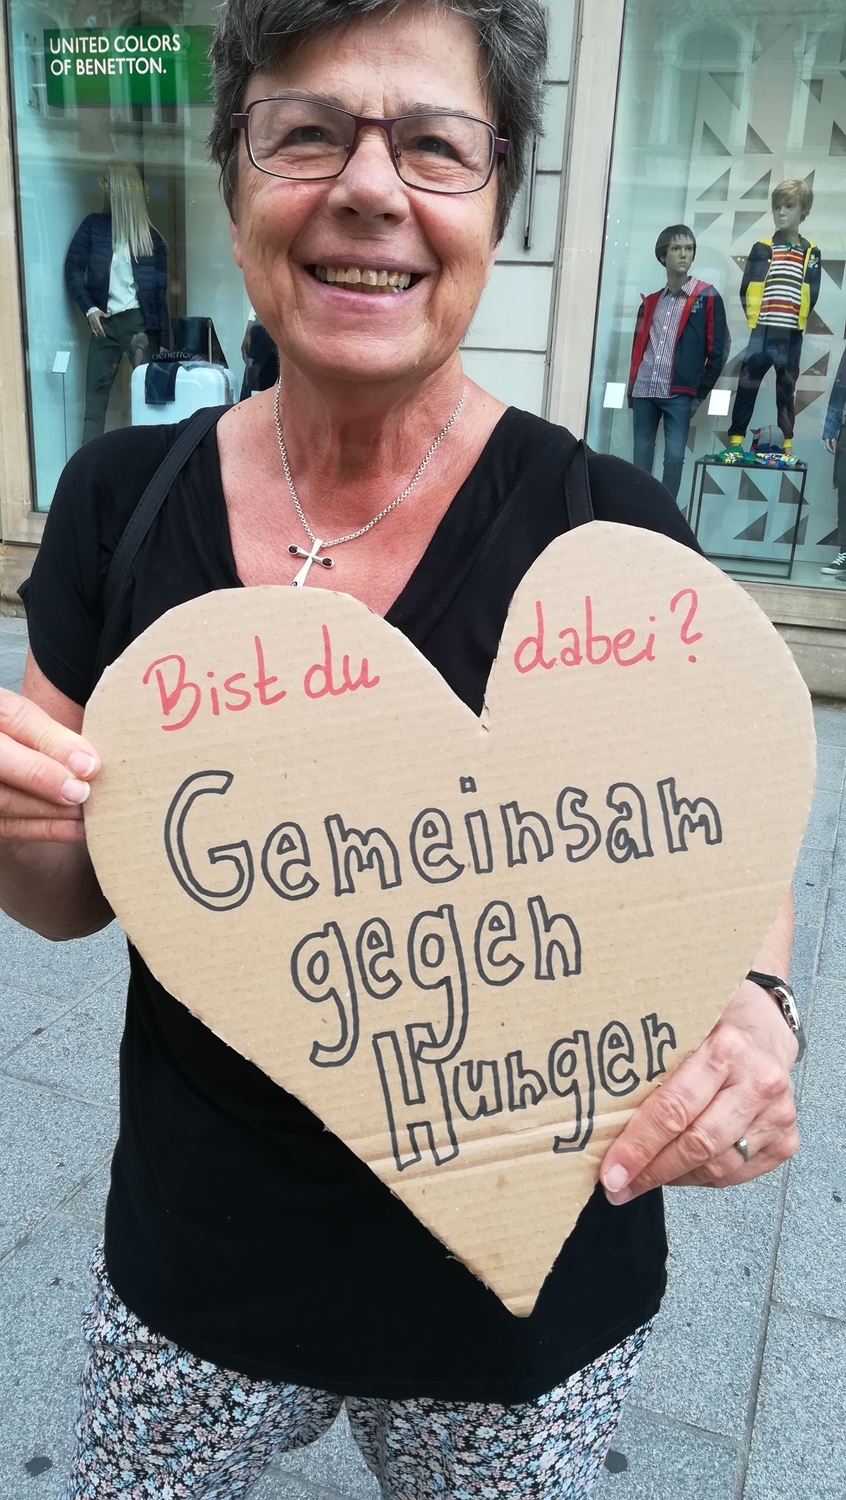 UNITED COLORS
OF BENETTON.
benetton
Bist du dabei?
Gemeinsam
gegen
Hunger